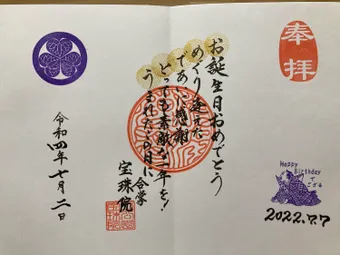 奉拝
お誕生日おめでとう
めぐり逢えた
であいに感謝
とっても素敵な一年を!
うまれたこの月に
合掌
宝珠院
令和四年
Happy
Birthday
でござる
2022.7.7